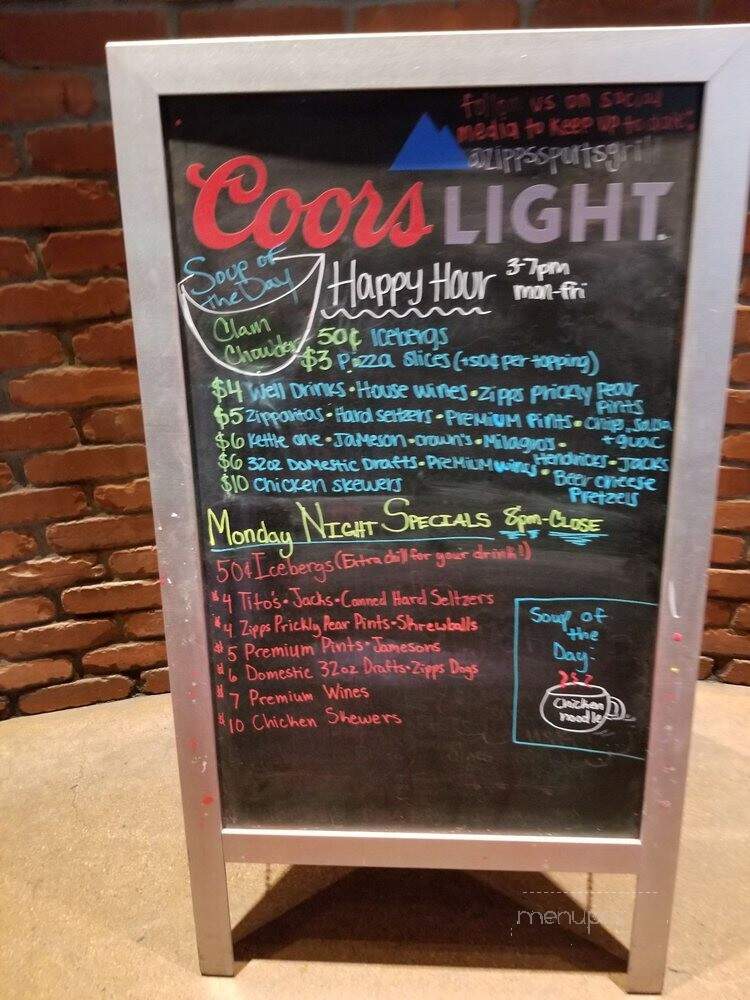 follow us on social
media to keep up to date
@zippssportsgrill
Coors LIGHT
Soup of
the Day
Clam
Chowder
Happy Hour 3-7pm
mon-fri
50¢ Icebergs
$3 Pizza slices (+50¢ per topping)
$4 Well Drinks • House wines • Zipps Prickly Pear
Pints
$5 Zipparitas • Hard seltzers • Premium Pints • Chips, salsa
+ guac
$6 Kettle one • Jameson • Crown's • Milagros •
Hendricks • Jacks
$6 32oz Domestic Drafts • Premium wines • Beer cheese
Pretzels
$10 Chicken skewers
Monday Night Specials 8pm-Close
50¢ Icebergs (Extra chill for your drink!)
$4 Tito's • Jacks • Canned Hard Seltzers
$4 Zipps Prickly Pear Pints • Skrewballs
$5 Premium Pints • Jamesons
$6 Domestic 32oz Drafts • Zipps Dogs
$7 Premium Wines
$10 Chicken Skewers
Soup of
the
Day:
Chicken
noodle